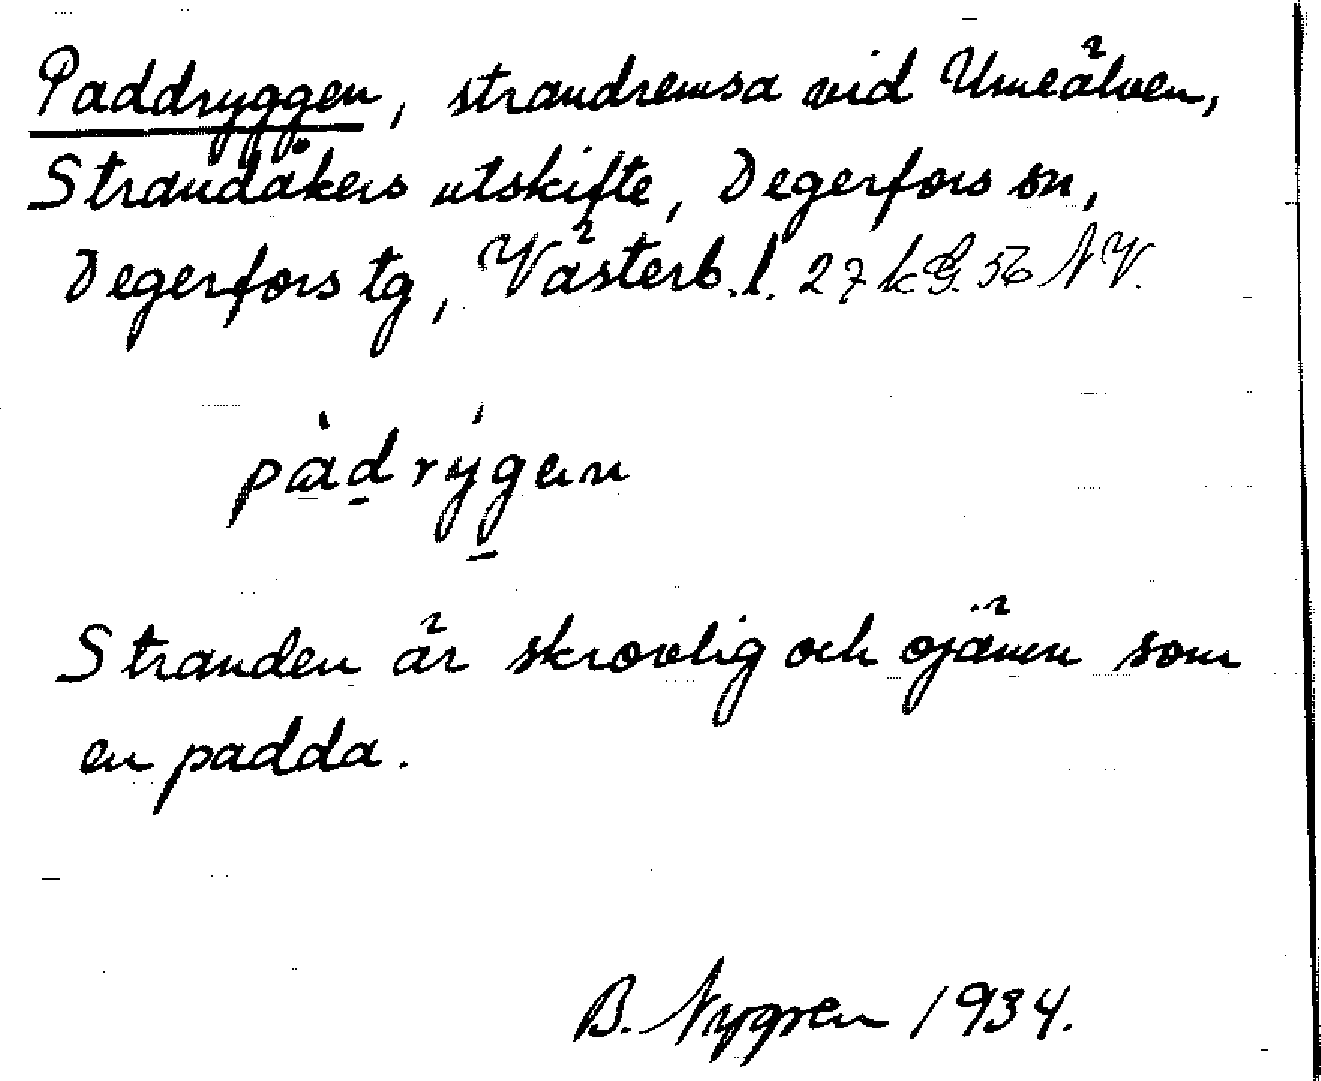 Paddryggen, strandremsa vid Umeälven,
Strandåkers utskifte, Degerfors sn,
Degerfors tg, Västerb. l. 27 k G. 56 NV.
pàdrýgen
Stranden är skrovlig och ojämn som
en padda.
B. Nygren 1934.